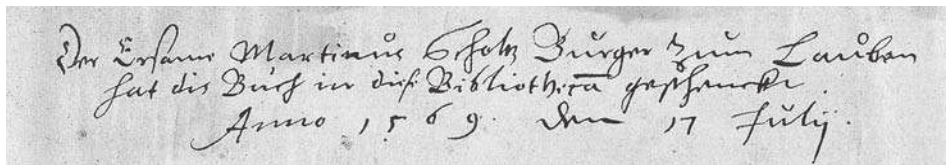 Der Ersame Martinus Scholtz Burger Zum Lauben
hat dis Buch in diese Bibliothecā geschenckt.
Anno 1569. den 17 Julij.